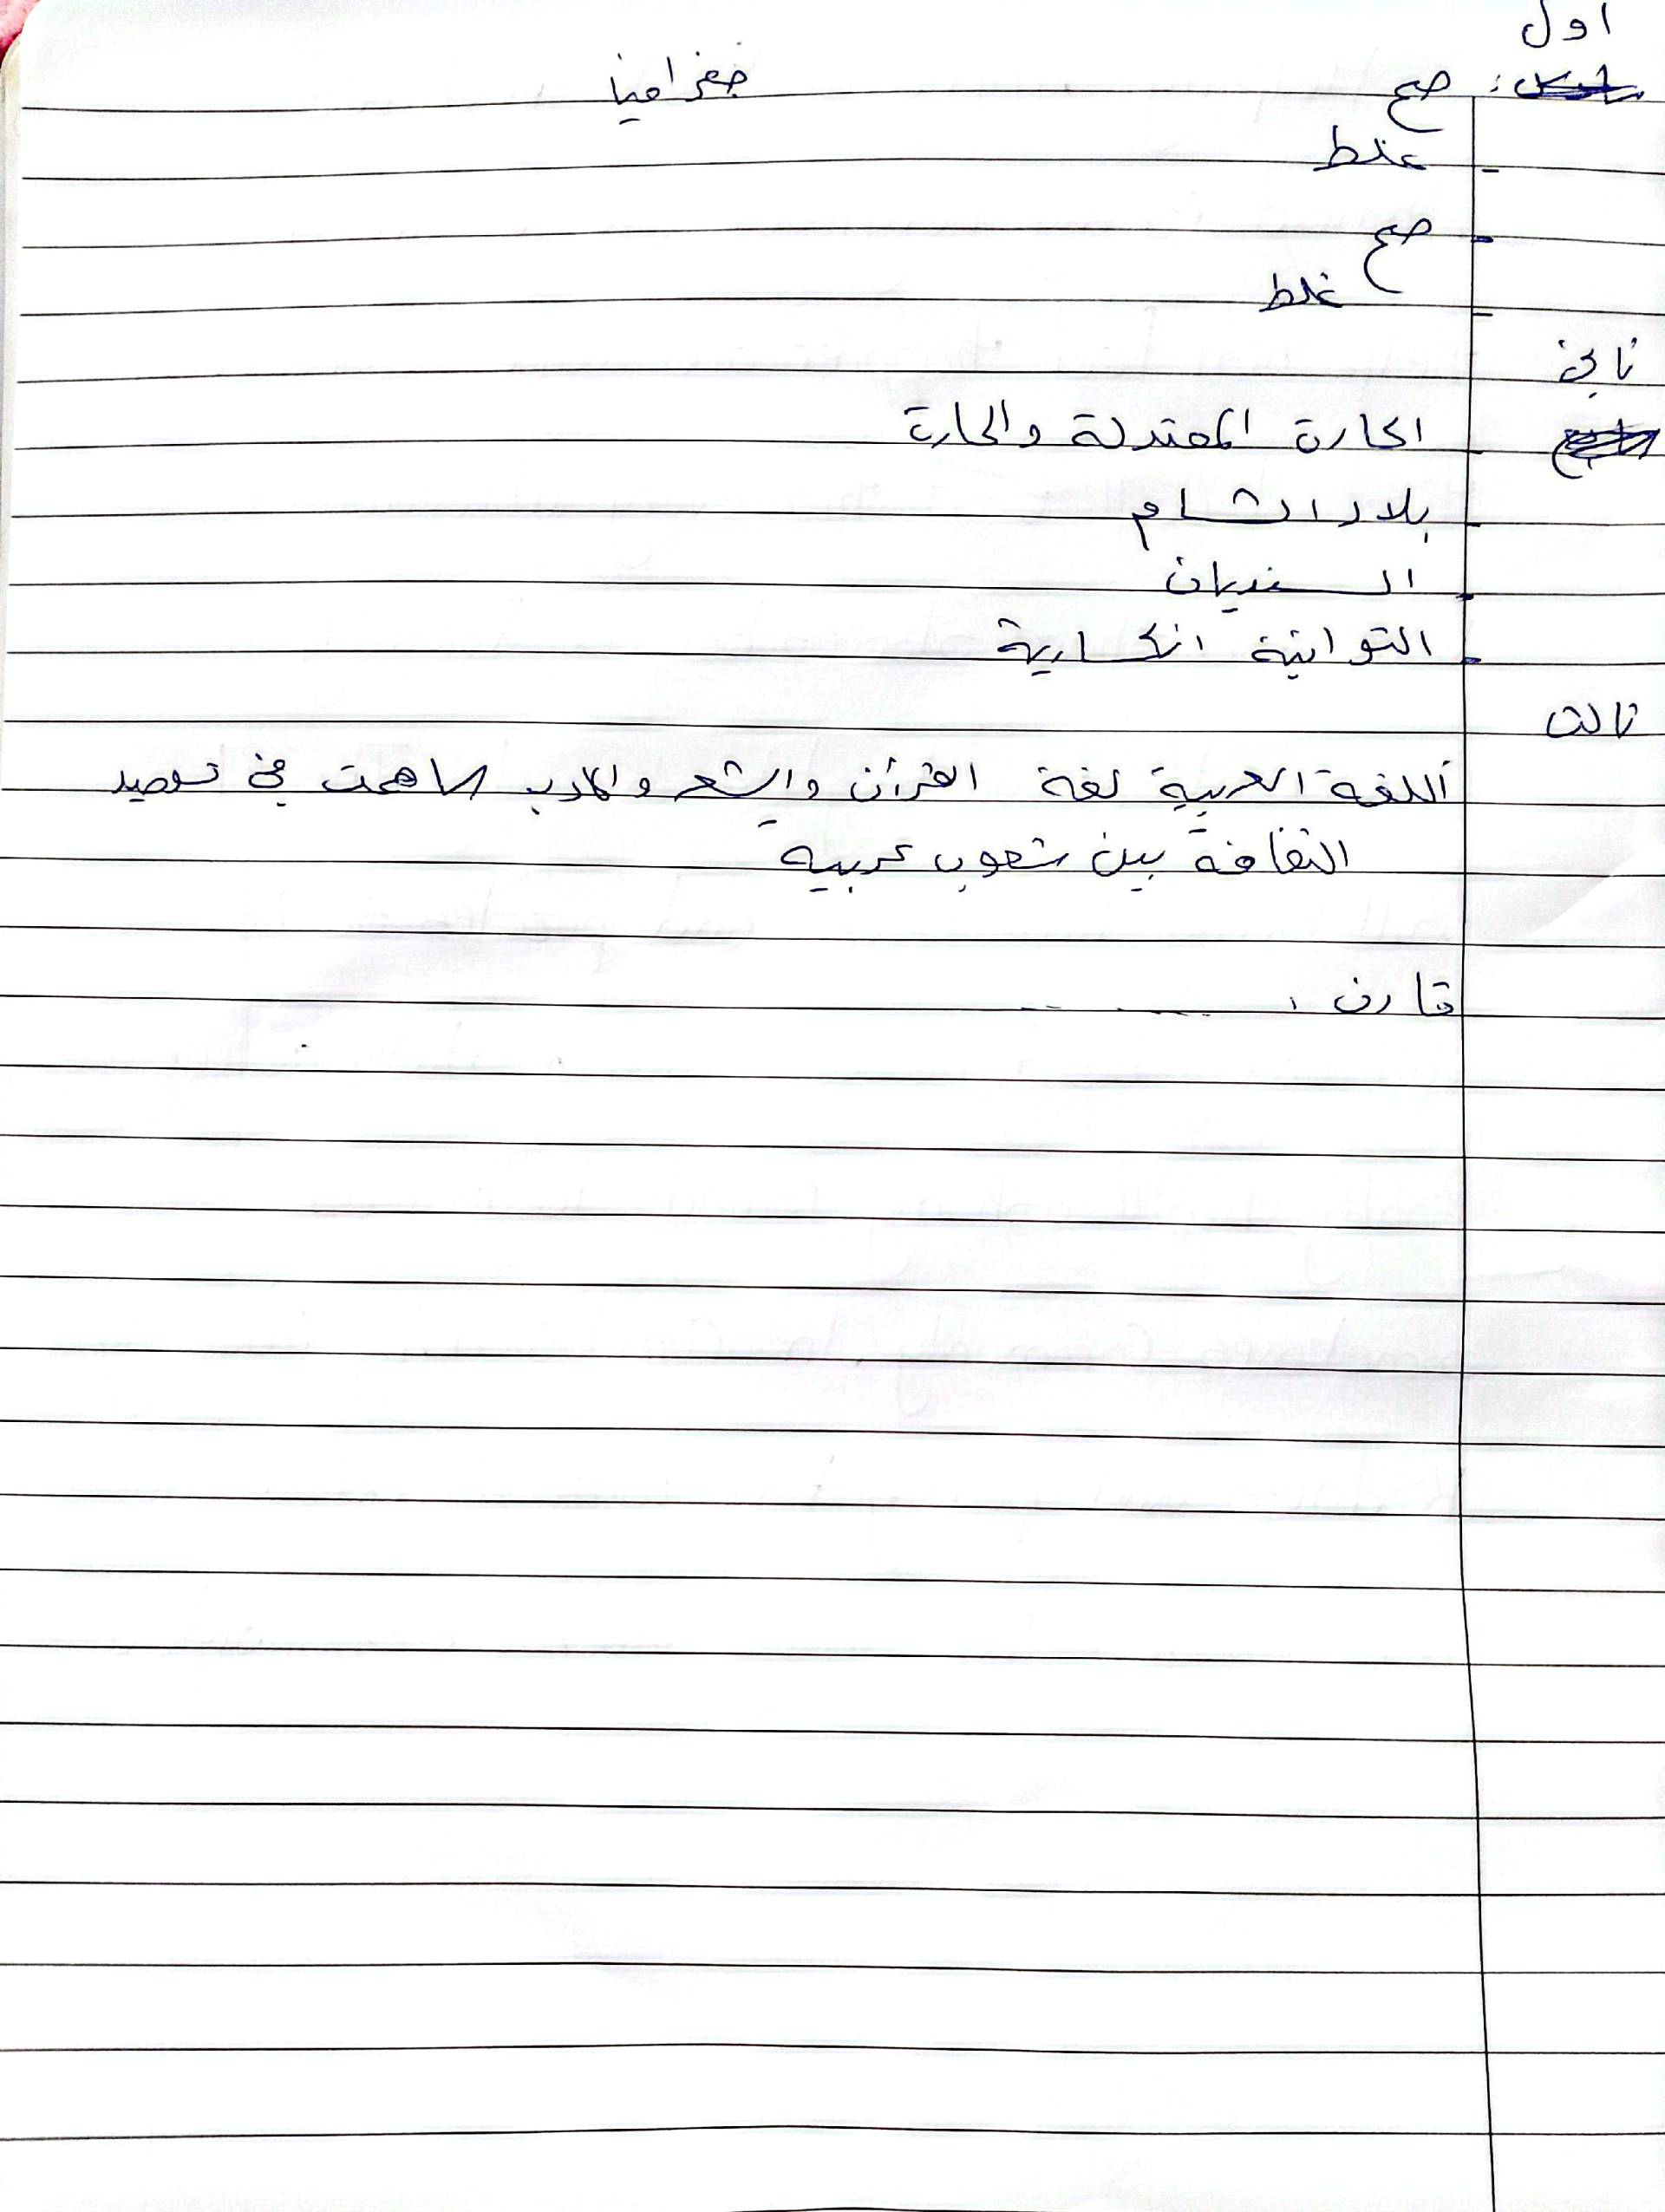 اول
صح
جغرافيا
غلط
صح
غلط
تاني
الحارة المعتدلة والحارة
بلاد الشام
السنديان
التوائية انكسارية
تالت
اللغة العربية لغة القرآن والشعر والادب ساهمت في توحيد
الثقافة بين شعوب عربية
قارن